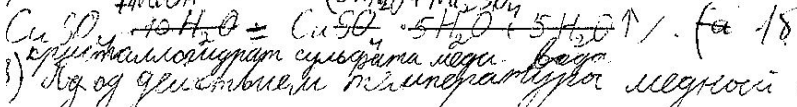 CuSO₄ · 10H₂O = CuSO · 5H₂O + 5H₂O↑
кристаллогидрат сульфата меди вода
3) Под действием температуры медной